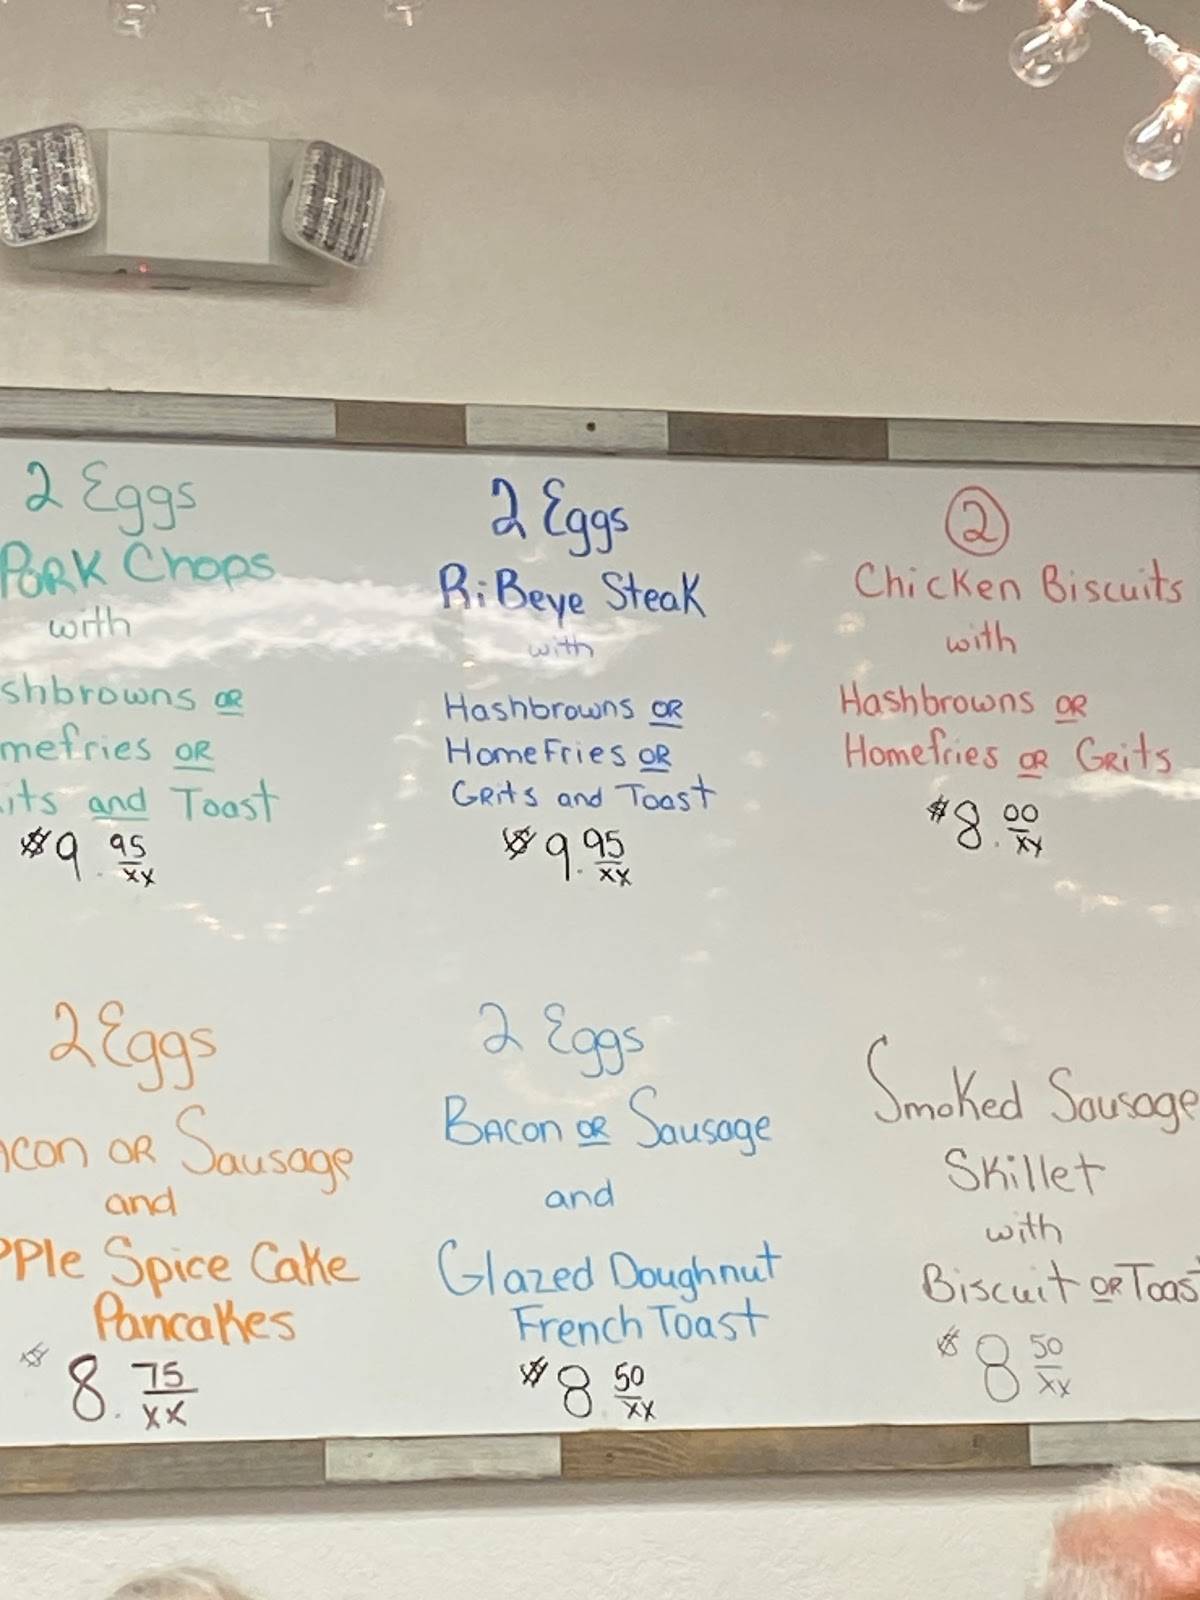 2 Eggs
Pork Chops
with
shbrowns OR
mefries OR
its and Toast
$9.95/xx
2 Eggs
RiBeye Steak
with
Hashbrowns OR
HomeFries OR
Grits and Toast
$9.95/xx
2
Chicken Biscuits
with
Hashbrowns OR
Homefries OR Grits
$8.00/xx
2 Eggs
acon OR Sausage
and
pple Spice Cake
Pancakes
$8.75/xx
2 Eggs
Bacon OR Sausage
and
Glazed Doughnut
French Toast
$8.50/xx
Smoked Sausage
Skillet
with
Biscuit OR Toast
$8 50/xx